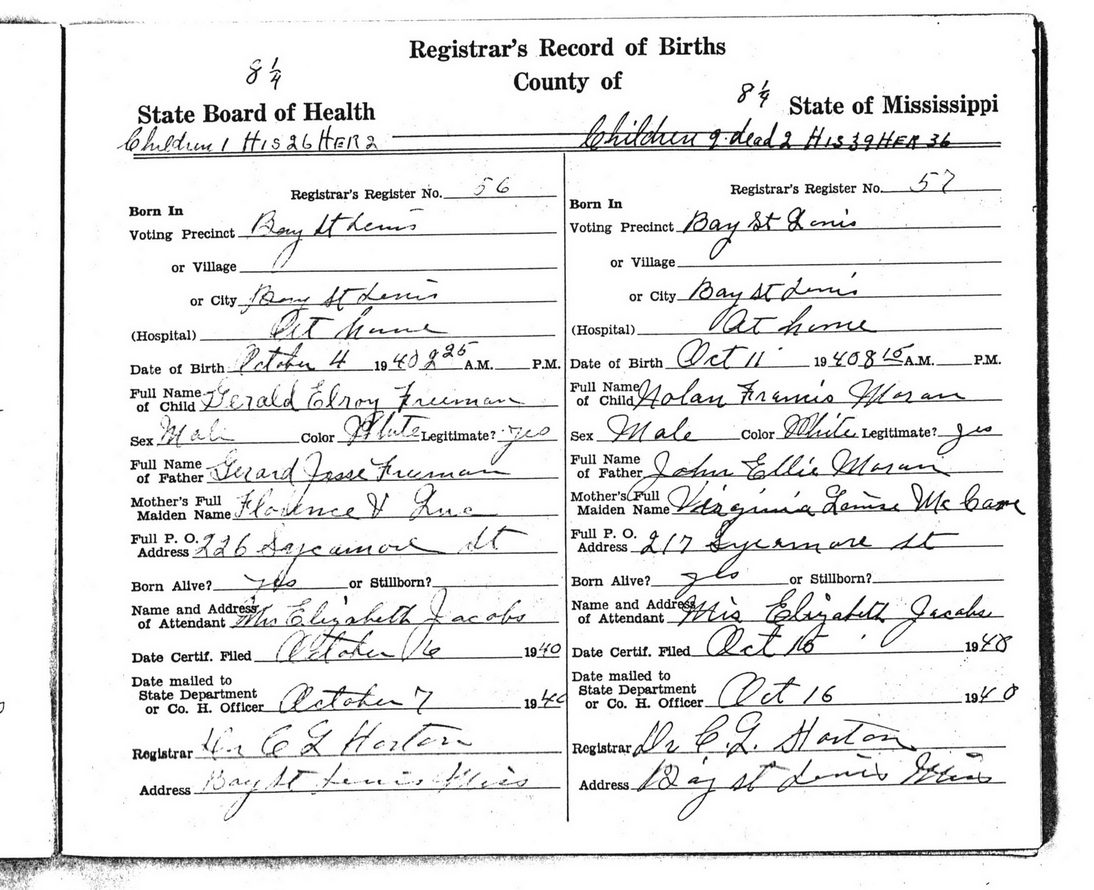 Registrar's Record of Births
County of
8 1/4
8 1/4
State Board of Health
State of Mississippi
Children 1 HIS 26 HER 2
Children 9 dead 2 HIS 39 HER 36
Registrar's Register No. 56
Born In
Voting Precinct Bay St Louis
or Village
or City Bay St Louis
(Hospital) At home
Date of Birth October 4 1940 2 25 A.M. P.M.
Full Name
of Child Gerald Elroy Freeman
Sex Male Color White Legitimate? yes
Full Name
of Father Gerard Jesse Freeman
Mother's Full
Maiden Name Florence V
Full P. O.
Address 226 Sycamore St
Born Alive? yes or Stillborn?
Name and Address
of Attendant Mrs Elizabeth Jacobs
Date Certif. Filed October 1940
Date mailed to
State Department
or Co. H. Officer October 7 1940
Registrar Dr C L Horton
Address Bay St Louis Miss
Registrar's Register No. 57
Born In
Voting Precinct Bay St Louis
or Village
or City Bay St Louis
(Hospital) At home
Date of Birth Oct 11 1940 8 15 A.M. P.M.
Full Name
of Child Nolan Francis Moran
Sex Male Color White Legitimate? yes
Full Name
of Father John Ellie Moran
Mother's Full
Maiden Name Virginia Louise
Full P. O.
Address 217 Sycamore st
Born Alive? yes or Stillborn?
Name and Address
of Attendant Mis Elizabeth Jacobs
Date Certif. Filed Oct 1940
Date mailed to
State Department
or Co. H. Officer Oct 16 1940
Registrar Dr C. L. Horton
Address Bay st Louis Miss